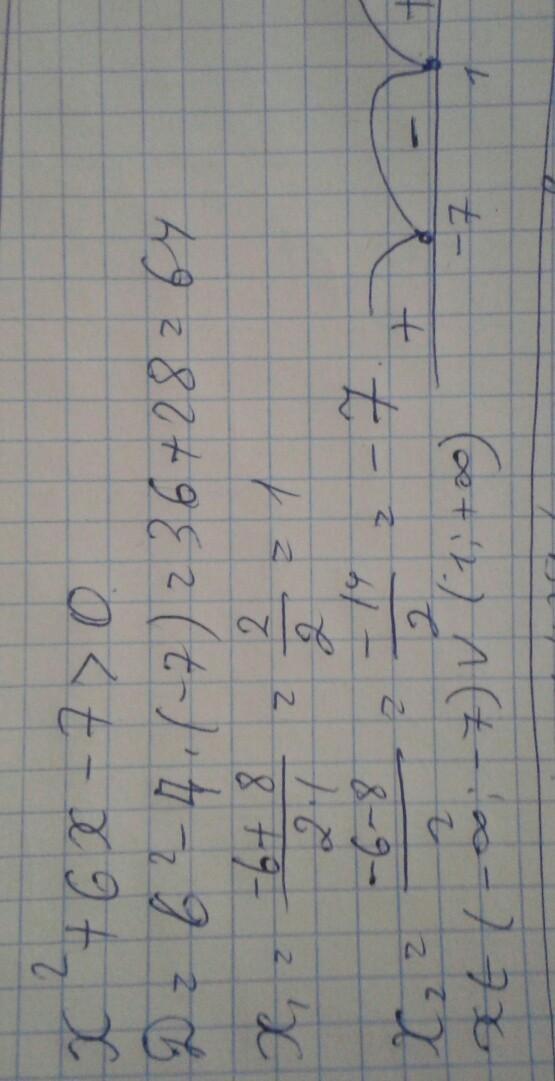 x² + 6x - 7 > 0
D = 6² - 4·(-7) = 36 + 28 = 64
x₁ = (-6+8)/(2·1) = 2/2 = 1
x₂ = (-6-8)/2 = -14/2 = -7
x∈ (-∞; -7) ∨ (1; +∞)
+ - +
-7 1